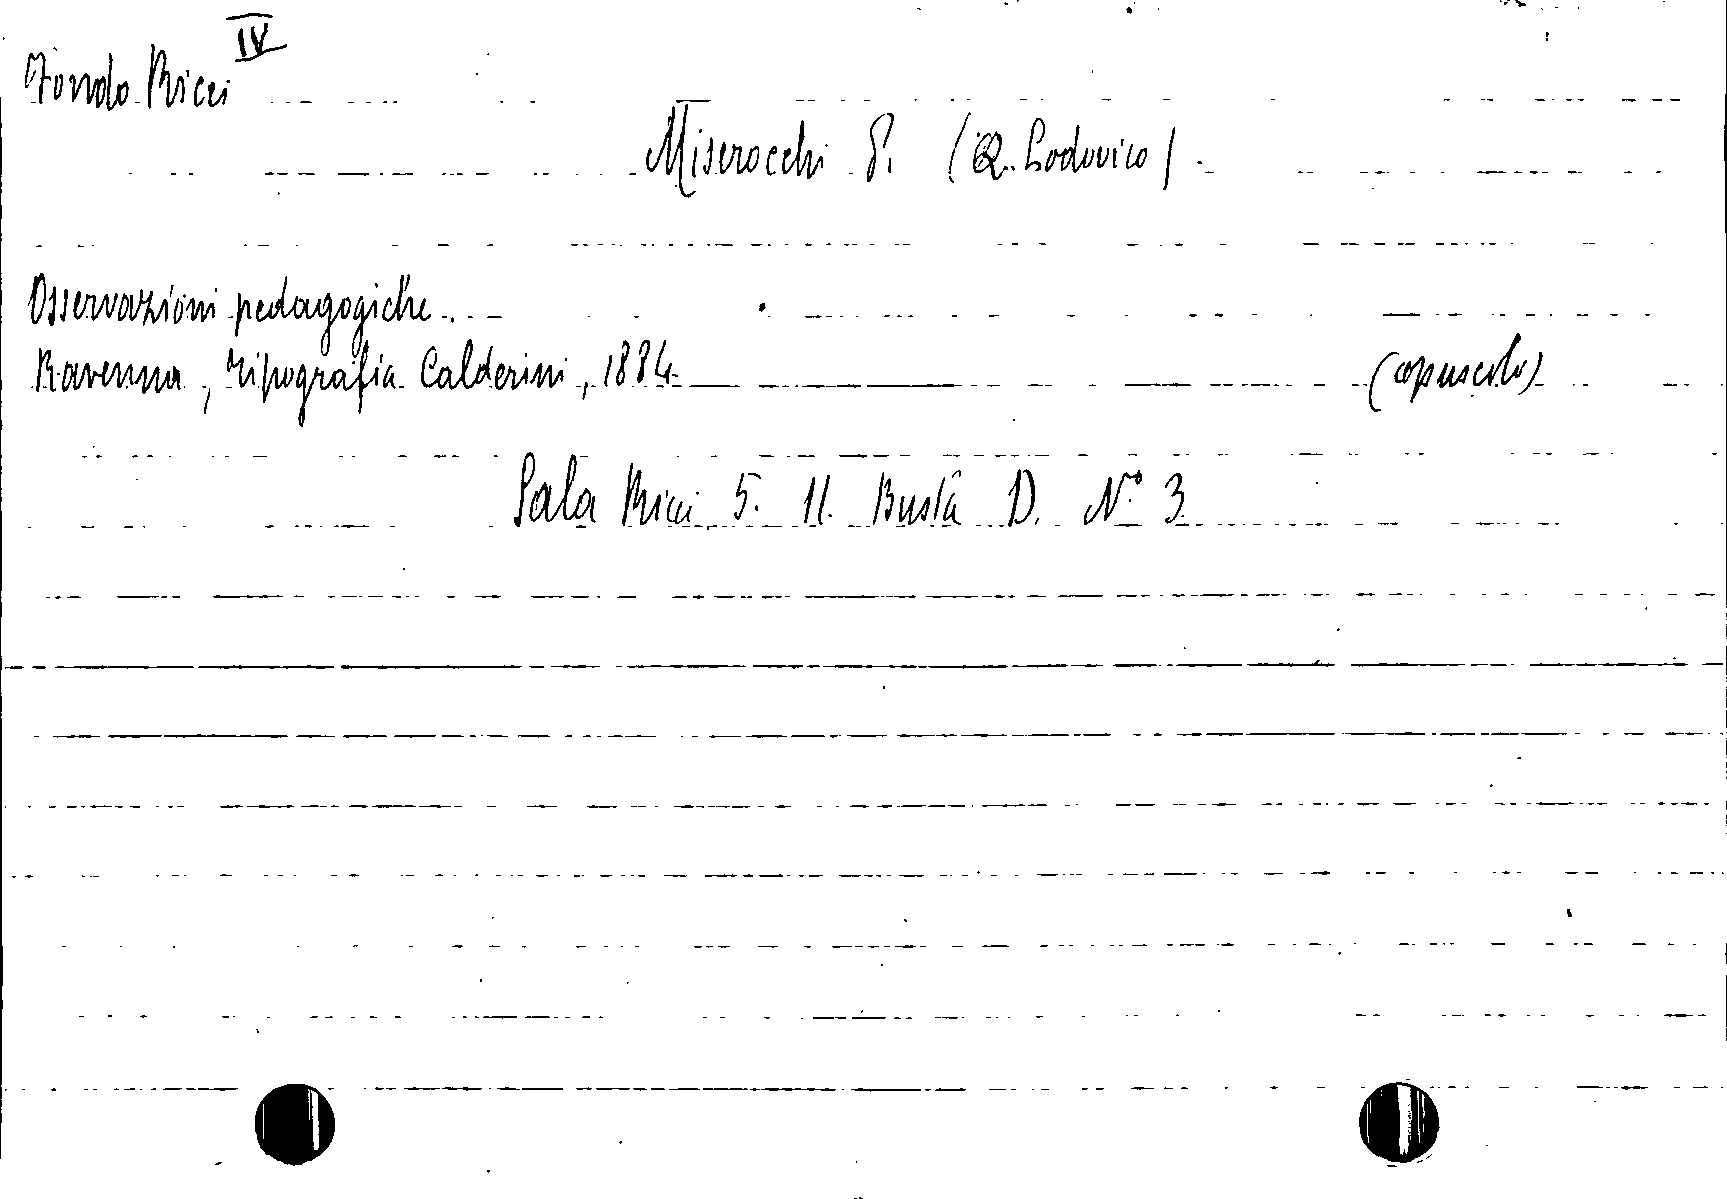 Fondo Ricci IV
Miserocchi S. (Q. Lodovico)
Osservazioni pedagogiche.
Ravenna, Tipografia Calderini, 1884 (opuscolo)
Sala Ricci 5. 11. Busta D. N° 3